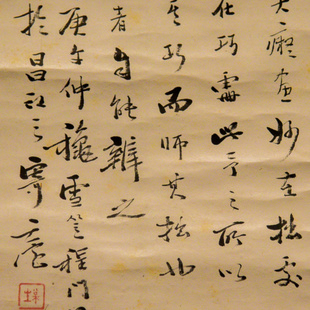 大癡畫妙在拙處
在巧處此予之所以
其巧而師其拙也
者自能辨之
庚午仲穐雪笠程門
於昌江之